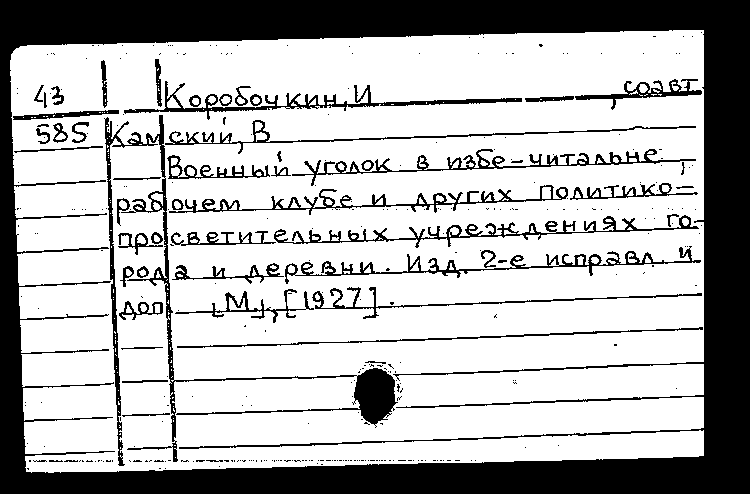 43 Коробочкин, И , соавт.
585 Камский, В
Военный уголок в избе-читальне,
рабочем клубе и других политико-
просветительных учреждениях го-
рода и деревни. Изд. 2-е исправл. и
доп. [М.], [1927].